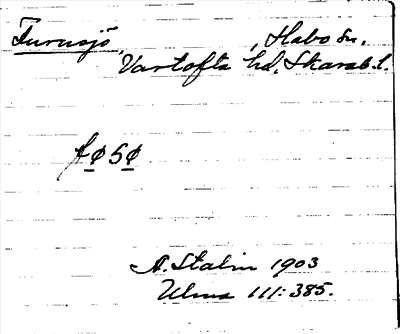 Furusjö, , Habo sn.
Vartofta hd, Skarab. l.
A. Stalin 1903
Ulma 111: 385.